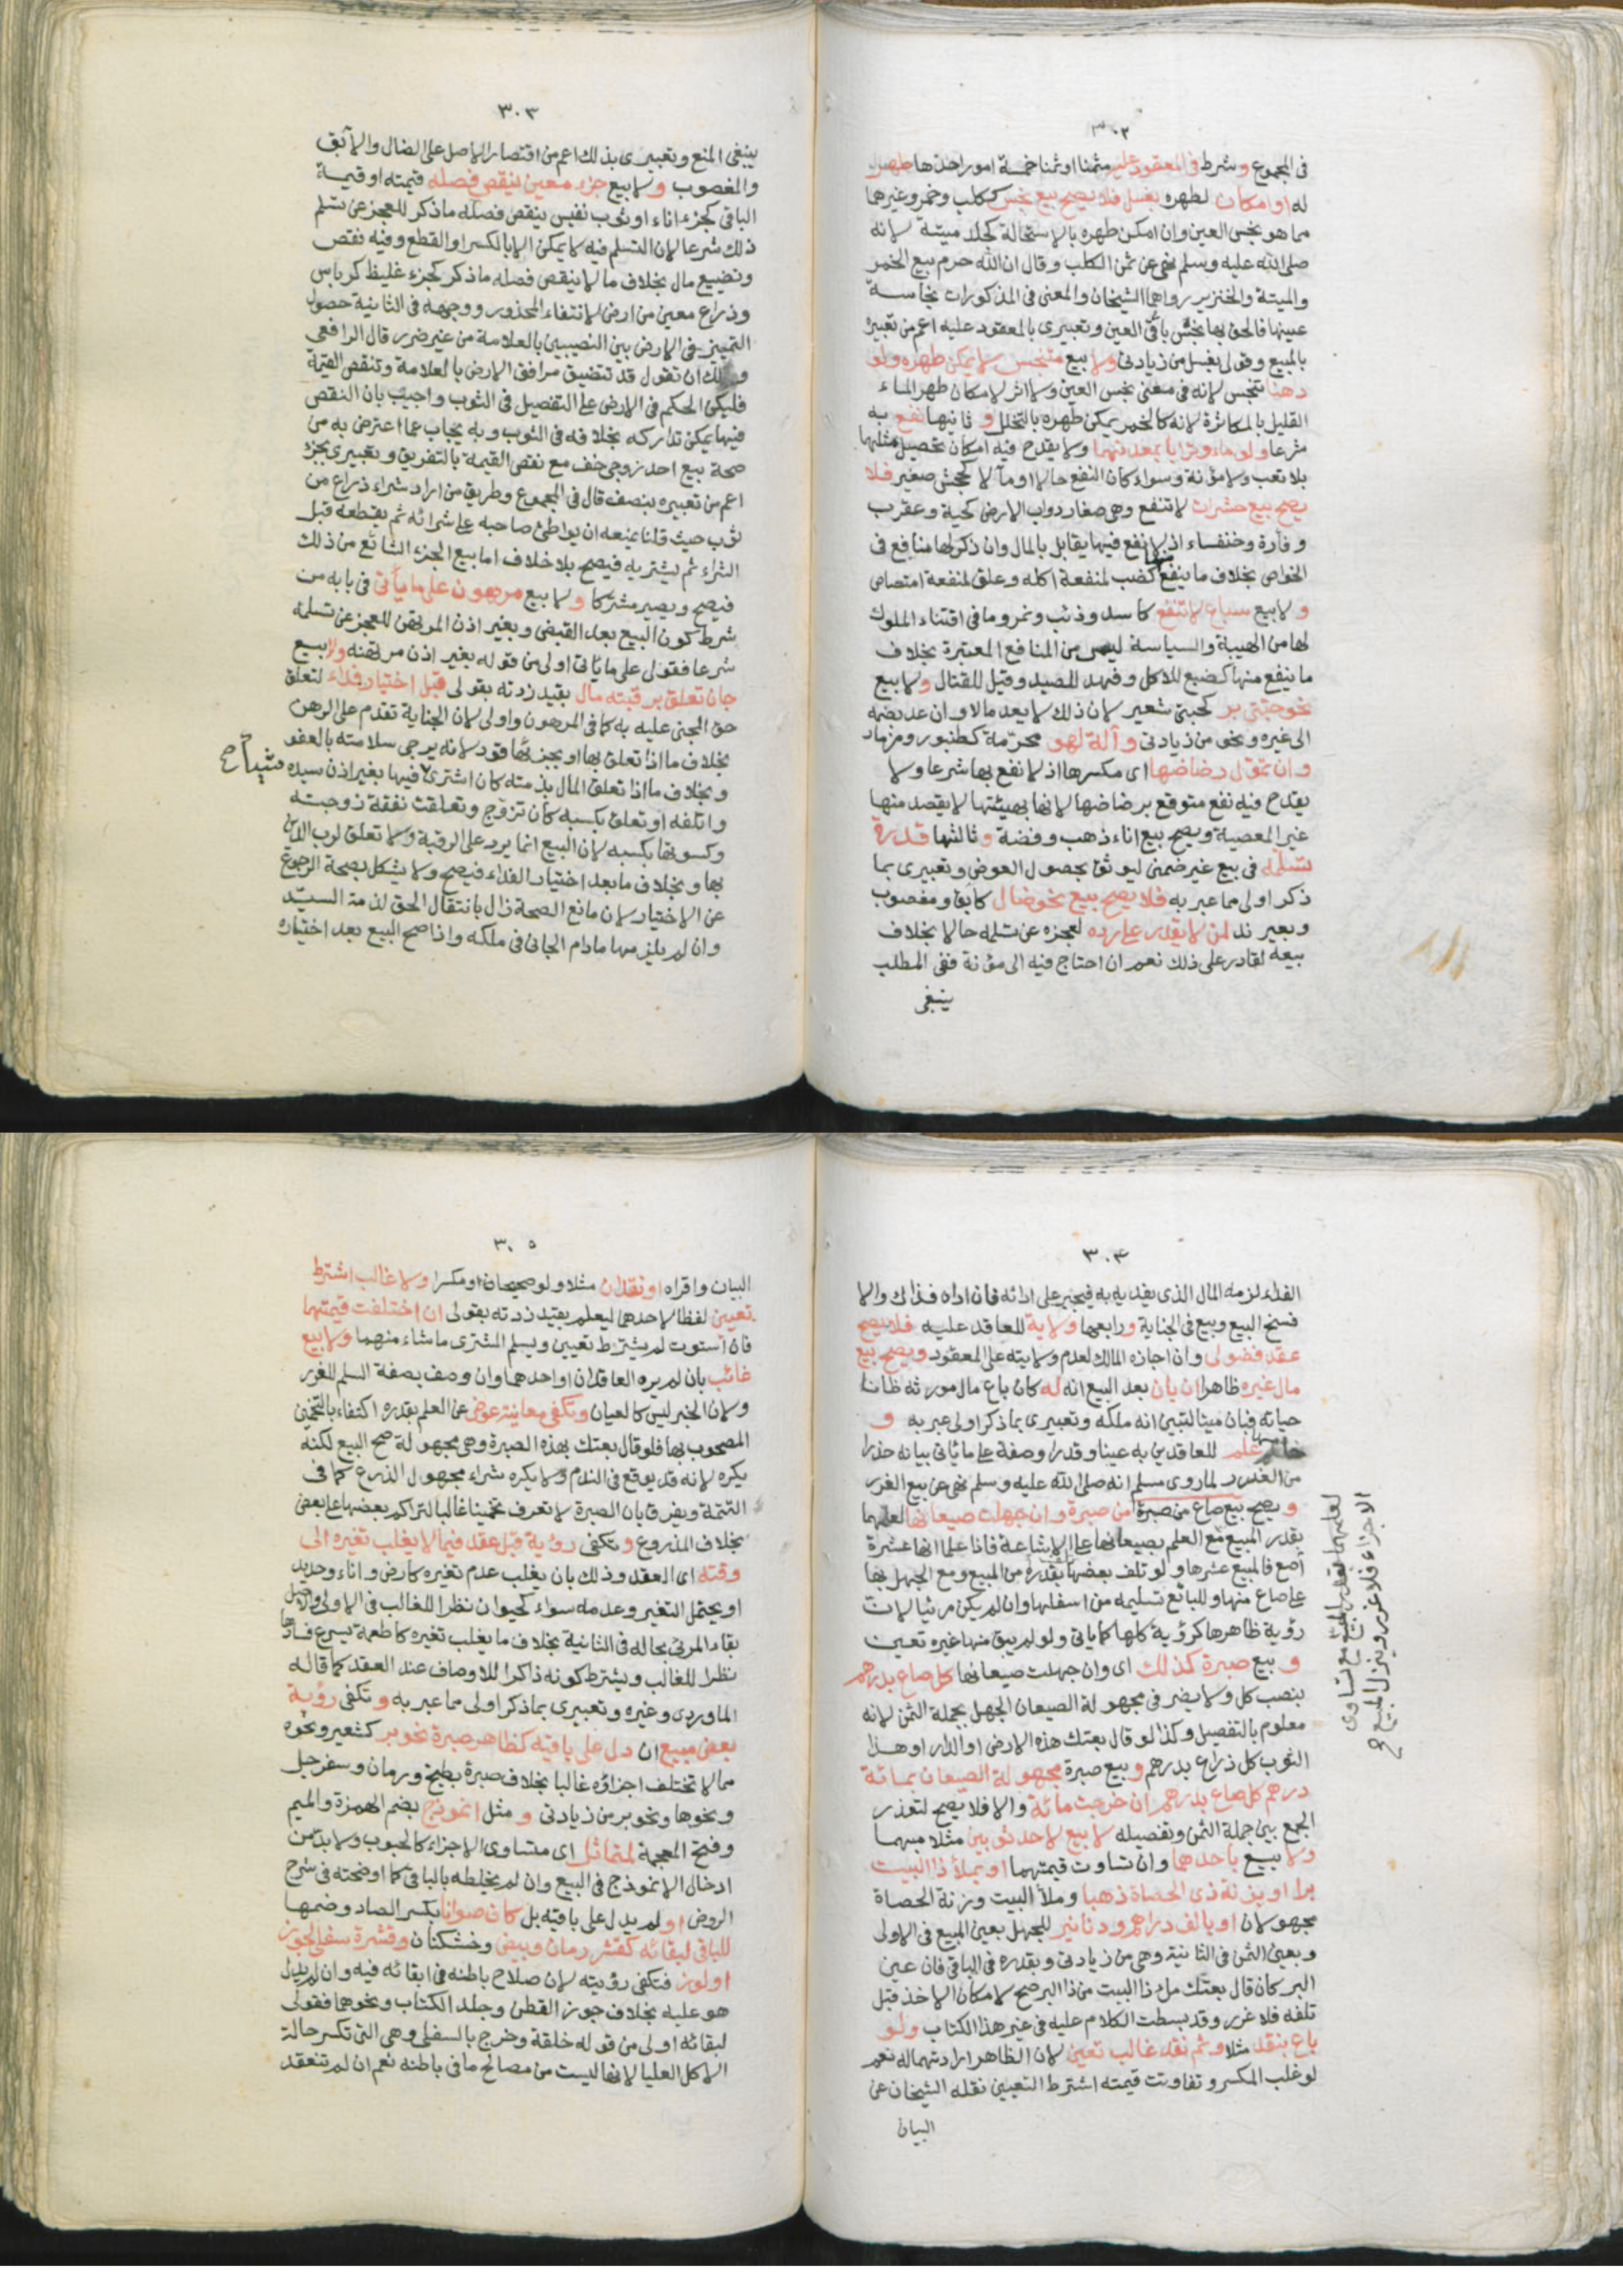 ٣٠٢
فى المجموع وشرط فى المعقود عليه مثمنا او ثمنا خمسة امور احدها طهر
له او امكان لطهره بغسل فلا يصح بيع نجس ككلب وخمر وغيرهما
مما هو نجس العين وان امكن طهره بالاستحالة كجلد ميتة لانه
صلى الله عليه وسلم نهى عن ثمن الكلب وقال ان الله حرم بيع الخمر
والميتة والخنزير رواهما الشيخان والمعنى فى المذكورات نجاسة
عينها فالحق بها نجس باقى العين وتعبيرى بالمعقود عليه اعم من تعبيره
بالمبيع وقولى بغسل من زيادتى ولا بيع متنجس لا يمكن طهره ولو
دهنا تنجس لانه فى معنى نجس العين ولا اثر لامكان طهر الماء
القليل بالمكاثرة لانه كالخمر يمكن طهره بالتخلل و ثانيها نفع به
شرعا ولو ماء وترابا بمعدنهما ولا يقدح فيه امكان تحصيل مثلهما
بلا تعب ولا مؤنة وسواء كان النفع حالا او مآلا كجحش صغير فلا
يصح بيع حشرات لا تنفع وهى صغار دواب الارض كحية وعقرب
وفارة وخنفساء اذ لا نفع فيها يقابل بالمال وان ذكر لها منافع فى
الخواص بخلاف ما ينفع منها كضب لمنفعة اكله وعلق لمنفعة امتصاص
ولا بيع سباع لا تنفع كاسد وذئب ونمر وما فى اقتناء الملوك
لها من الهيبة والسياسة ليس من المنافع المعتبرة بخلاف
ما ينفع منها كضبع للاكل وفهد للصيد وفيل للقتال ولا بيع
نحو حبتى بر كحبتى شعير لان ذلك لا يعد مالا وان عد بضمه
الى غيره ونحو من زيادتى وآلة لهو محرّمة كطنبور ومزمار
وان تمول رضاضها اى مكسرها اذ لا نفع بها شرعا ولا
يقدح فيه نفع متوقع برضاضها لانها بهيئتها لا يقصد منها
غير المعصية ويصح بيع اناء ذهب وفضة وثالثها قدرة
تسلمه فى بيع غير ضمنى ليوثق بحصول العوض وتعبيرى بما
ذكر اولى مما عبر به فلا يصح بيع نحو ضال كآبق ومغصوب
وبعير ند لمن لا يقدر على رده لعجزه عن تسلمه حالا بخلاف
بيعه لقادر على ذلك نعم ان احتاج فيه الى مؤنة ففى المطلب
ينبغى
٣٠٣
ينبغى المنع وتعبيرى بذلك اعم من اقتصار الاصل على الضال والآبق
والمغصوب ولا بيع جزء معين ينقص فصله قيمته او قيمة
الباقى كجزء اناء او ثوب نفيس ينقص فصله ما ذكر للعجز عن تسلم
ذلك شرعا لان التسلم فيه لا يمكن الا بالكسر او القطع وفيه نقص
وتضييع مال بخلاف ما لا ينقص فصله ما ذكر كجزء غليظ كرباس
وذراع معين من ارض لانتفاء المحذور ووجهه فى الثانية حصول
التمييز فى الارض بين النصيبين بالعلامة من غير ضرر قال الرافعى
ولك ان تقول قد تتضيق مرافق الارض بالعلامة وتنقص القيمة
فليكن الحكم فى الارض على التفصيل فى الثوب واجيب بان النقص
فيها يمكن تداركه بخلافه فى الثوب وبه يجاب عما اعترض به من
صحة بيع احد زوجى خف مع نقص القيمة بالتفريق وتعبيرى بجزء
اعم من تعبيره بنصف قال فى المجموع وطريق من اراد شراء ذراع من
ثوب حيث قلنا بمنعه ان يواطئ صاحبه على شرائه ثم يقطعه قبل
الشراء ثم يشتريه فيصح بلا خلاف اما بيع الجزء الشائع من ذلك
فيصح ويصير مشتركا ولا بيع مرهون على ما يأتى فى بابه من
شرط كون البيع بعد القبض وبغير اذن المرتهن للعجز عن تسلمه
شرعا فقولى على ما يأتى اولى من قوله بغير اذن مرتهنه ولا بيع
جان تعلق برقبته مال بقيد زدته بقولى قبل اختيار فداء لتعلق
حق المجنى عليه به كما فى المرهون واولى لان الجناية تقدم على الرهن
بخلاف ما اذا تعلق بها او بجزئها قود لانه يرجى سلامته بالعفو
وبخلاف ما اذا تعلق المال بذمته كان اشترى فيها بغير اذن سيده
شيأ صح
واتلفه او تعلق بكسبه كأن تزوّج وتعلقت نفقة زوجته
وكسوتها بكسبه لان البيع انما يرد على الرقبة ولا تعلق لرب الدين
بها وبخلاف ما بعد اختيار الفداء فيصح ولا يشكل بصحة الرجوع
عن الاختيار لان مانع الصحة زال بانتقال الحق لذمة السيّد
وان لم يلزمها ما دام الجانى فى ملكه واذا صح البيع بعد اختياره
٣٠٤
الفداء لزمه المال الذى يفديه به فيجبر على ادائه فان اداه فذاك والا
فسخ البيع وبيع فى الجناية ورابعها ولاية للعاقد عليه فلا يصح
عقد فضولى وان اجازه المالك لعدم ولايته على المعقود ويصح بيع
مال غيره ظاهرا ان بان بعد البيع انه له كان باع مال مورثه ظانا
حياته فبان ميتا لتبين انه ملكه وتعبيرى بما ذكر اولى مما عبر به و
خامسها علم للعاقدين به عينا وقدرا وصفة على ما يأتى بيانه حذرا
من الغرر لما روى مسلم انه صلى الله عليه وسلم نهى عن بيع الغرر
ويصح بيع صاع من صبرة من صبرة وان جهلت صيعانها لعلمهما
بقدر المبيع مع العلم بصيعانها على الاشاعة فاذا علما انها عشرة
آصع فالمبيع عشرها ولو تلف بعضها تلف بقدره من المبيع ومع الجهل بها
على صاع منها وللبائع تسليمه من اسفلها وان لم يكن مرئيا لان
رؤية ظاهرها كرؤية كلها كما يأتى ولو لم يبق منها غيره تعين
لعلمهما بقدر المبيع مع تساوى
الاجزاء فلا غرر وينزل المبيع صح
وبيع صبرة كذلك اى وان جهلت صيعانها كل صاع بدرهم
بنصب كل ولا يضر فى مجهولة الصيعان الجهل بجملة الثمن لانه
معلوم بالتفصيل وكذا لو قال بعتك هذه الارض او الدار او هذا
الثوب كل ذراع بدرهم وبيع صبرة مجهولة الصيعان بمائة
درهم كل صاع بدرهم ان خرجت مائة والا فلا يصح لتعذر
الجمع بين جملة الثمن وتفصيله لا بيع لاحد ثوبين مثلا مبهما
ولا بيع باحدهما وان تساوت قيمتهما او بملأ ذا البيت
برا او بزنة ذى الحصاة ذهبا وملأ البيت وزنة الحصاة
مجهولان او بالف دراهم ودنانير للجهل بعين المبيع فى الاولى
وبعين الثمن فى الثانية وهى من زيادتى وبقدره فى الباقى فان عين
البر كان قال بعتك ملء ذا البيت من ذا البر صح لامكان الاخذ قبل
تلفه فلا غرر وقد بسطت الكلام عليه فى غير هذا الكتاب ولو
باع بنقد مثلا وثم نقد غالب تعين لان الظاهر ارادتهما له نعم
لو غلب المكسر وتفاوتت قيمته اشترط التعيين نقله الشيخان عن
البيان
٣٠٥
البيان واقراه او نقدان مثلا ولو صحيحان او مكسرا ولا غالب اشترط
تعيين لفظا لاحدهما ليعلم بقيد زدته بقولى ان اختلفت قيمتهما
فان استوت لم يشترط تعيين ويسلم المشترى ما شاء منهما ولا بيع
غائب بان لم يره العاقدان او احدهما وان وصف بصفة السلم للغرر
ولان الخبر ليس كالعيان وتكفى معاينة عوض عن العلم بقدره اكتفاء بالتخمين
المصحوب بها فلو قال بعتك بهذه الصبرة وهى مجهولة صح البيع لكنه
يكره لانه قد يوقع فى الندم ولا يكره شراء مجهول الذرع كما فى
التتمة ويفرق بان الصبرة لا تعرف تخمينا غالبا لتراكم بعضها على بعض
بخلاف المذروع وتكفى رؤية قبل عقد فيما لا يغلب تغيره الى
وقته اى العقد وذلك بان يغلب عدم تغيره كارض واناء وحديد
او يحتمل التغير وعدمه سواء كحيوان نظرا للغالب فى الاولى ولاصل
بقاء المرئى بحاله فى الثانية بخلاف ما يغلب تغيره كاطعمة يسرع فسادها
نظرا للغالب ويشترط كونه ذاكرا للاوصاف عند العقد كما قاله
الماوردى وغيره وتعبيرى بما ذكر اولى مما عبر به وتكفى رؤية
بعض مبيع ان دل على باقيه كظاهر صبرة نحو بر كشعير ونحوه
مما لا تختلف اجزاؤه غالبا بخلاف صبرة بطيخ ورمان وسفرجل
ونحوها ونحو بر من زيادتى و مثل انموذج بضم الهمزة والميم
وفتح المعجمة لمتماثل اى متساوى الاجزاء كالحبوب ولا بدّ من
ادخال الانموذج فى البيع وان لم يخلطه بالباقى كما اوضحته فى شرح
الروض او لم يدل على باقيه بل كان صوانا بكسر الصاد وضمها
للباقى لبقائه كقشر رمان وبيض وخشكنان وقشرة سفلى لجوز
او لوز فتكفى رؤيته لان صلاح باطنه فى ابقائه فيه وان لم يدل
هو عليه بخلاف جوز القطن وجلد الكتاب ونحوهما فقولى
لبقائه اولى من قوله خلقة وخرج بالسفلى وهى التى تكسر حالة
الاكل العليا لانها ليست من مصالح ما فى باطنه نعم ان لم تنعقد